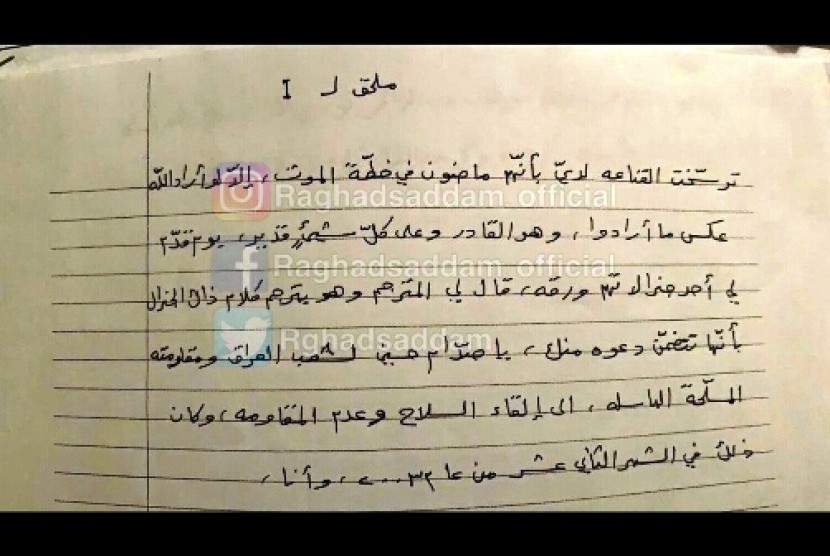 ملحق لـ I
ترسّخت القناعه لديّ بأنّهم ماضون في خطّة الموت، إلّا لو أراد اللّه
عكس ما أرادوا، وهو القادر وعلى كلّ شيئٍ قدير، يوم قدّم
لي أحد جنرالاتهم ورقه، قال لي المترجم وهو يترجم كلام ذلك الجنرال
بأنّها تتضمّن دعوه منك، يا صدّام حسين لشعب العراق ومقاومته
المسلّحة الباسله، الى إلقاء السلاح وعدم المقاومه، وكان
ذلك في الشهر الثاني عشر من عام ٢٠٠٣، وأنا،
Raghadsaddam_official
Raghadsaddam_official
Rghadsaddam